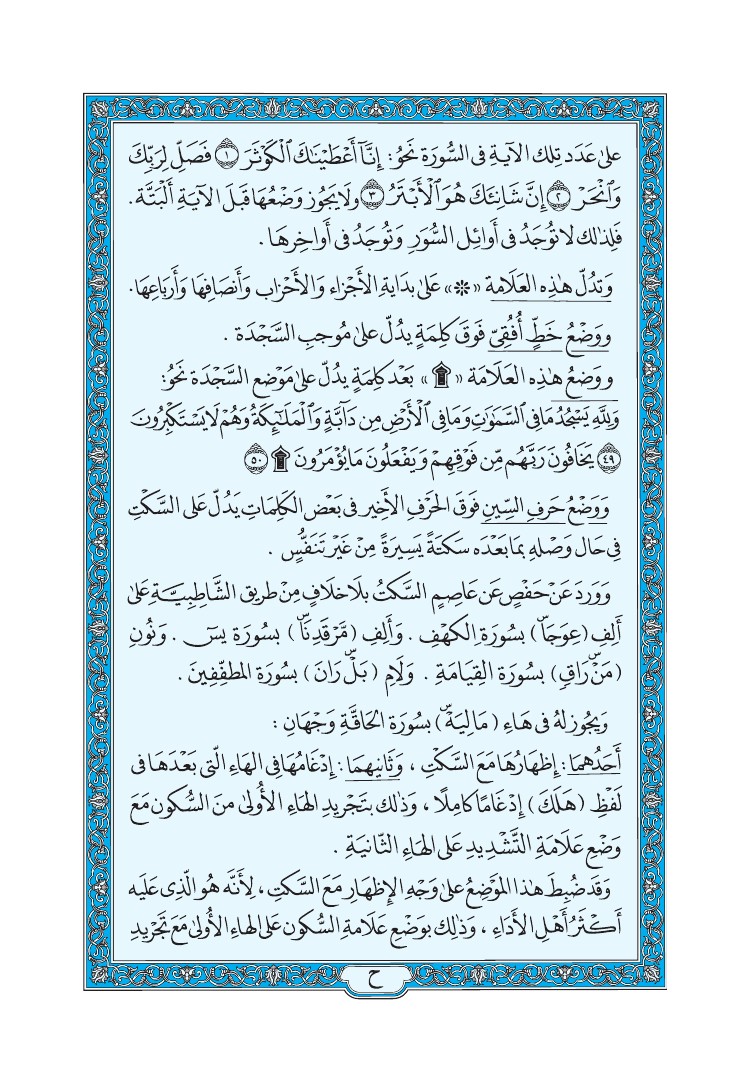 عَلَىٰ عَدَدِ تِلْكَ الآيَةِ فِى السُّورَةِ نَحْوُ: إِنَّآ أَعْطَيْنَٰكَ ٱلْكَوْثَرَ ١ فَصَلِّ لِرَبِّكَ
وَٱنْحَرْ ٢ إِنَّ شَانِئَكَ هُوَ ٱلْأَبْتَرُ ٣ وَلَا يَجُوز وَضْعُهَا قَبْلَ الآيَةِ أَلْبَتَّةَ.
فَلِذَٰلِكَ لَا تُوجَدُ فِى أَوَائِلِ السُّوَرِ وَتُوجَدُ فِى أَوَاخِرِهَا.
وَتَدُلّ هٰذِهِ العَلَامَة «۞» عَلَىٰ بِدَايَةِ الأَجْزَاءِ وَالأَحْزَابِ وَأَنصَافِهَا وَأَرْبَاعِهَا.
وَوَضْعُ خَطٍّ أُفُقِىٍّ فَوْقَ كَلِمَةٍ يَدُلّ عَلَىٰ مُوجِبِ السَّجْدَة.
وَوَضْعُ هٰذِهِ العَلَامَة «۩» بَعْدَ كَلِمَةٍ يَدُلّ عَلَىٰ مَوْضِعِ السَّجْدَة نَحْوُ:
وَلِلَّهِ يَسْجُدُ مَا فِى ٱلسَّمَٰوَٰتِ وَمَا فِى ٱلْأَرْضِ مِن دَآبَّةٍ وَٱلْمَلَٰٓئِكَةُ وَهُمْ لَا يَسْتَكْبِرُونَ
٤٩ يَخَافُونَ رَبَّهُم مِّن فَوْقِهِمْ وَيَفْعَلُونَ مَا يُؤْمَرُونَ ۩ ٥٠
وَوَضْعُ حَرفِ السِّينِ فَوْقَ الحَرْفِ الأَخِيرِ فِى بَعْضِ الكَلِمَاتِ يَدُلّ عَلَى السَّكْتِ
فِى حَالِ وَصْلِهِ بِمَا بَعْدَه سَكْتَةً يَسِيرَةً مِنْ غَيْرِ تَنَفُّسٍ.
وَوَرَدَ عَنْ حَفْصٍ عَنْ عَاصِمٍ السَّكْتُ بِلَا خِلَافٍ مِنْ طَرِيق الشَّاطِبِيَّةِ عَلَىٰ
أَلِفِ (عِوَجَاۜ) بِسُورَةِ الكَهْفِ. وَأَلِفِ (مَّرْقَدِنَاۜ) بِسُورَةِ يسٓ. وَنُونِ
(مَنْۜ رَاقٍ) بِسُورَةِ القِيَامَةِ. وَلَامِ (بَلْۜ رَانَ) بِسُورَةِ المطفِّفِينَ.
وَيَجُوزُ لَهُ فِى هَاءِ (مَالِيَهْۜ) بِسُورَةِ الحَاقَّةِ وَجْهَانِ:
أَحَدُهُمَا: إِظْهَارُهَا مَعَ السَّكْتِ، وَثَانِيهِمَا: إِدْغَامُهَا فِى الهَاءِ الَّتِى بَعْدَهَا فِى
لَفْظِ (هَلَكَ) إِدْغَامًا كَامِلًا، وَذٰلِكَ بِتَجْرِيدِ الهَاءِ الأُولَىٰ مِنَ السُّكُونِ مَعَ
وَضْعِ عَلَامَةِ التَّشْدِيدِ عَلَى الهَاءِ الثَّانِيَةِ.
وَقَدْ ضُبِطَ هٰذَا المَوْضِعُ عَلَىٰ وَجْهِ الإِظْهَارِ مَعَ السَّكْتِ، لِأَنَّه هُوَ الَّذِى عَلَيْهِ
أَكْثَرُ أَهْلِ الأَدَاءِ، وَذٰلِكَ بِوَضْعِ عَلَامَةِ السُّكُون عَلَى الهَاءِ الأُولَىٰ مَعَ تَجْرِيدِ
ح